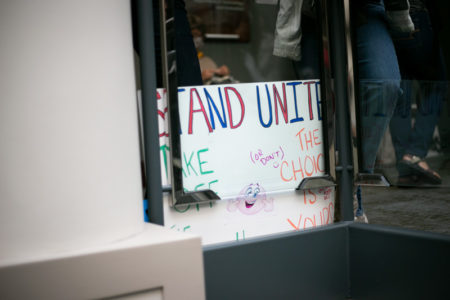 TAND UNITE
AKE (OR DON'T) THE
OFF CHOI
IS
YOUR